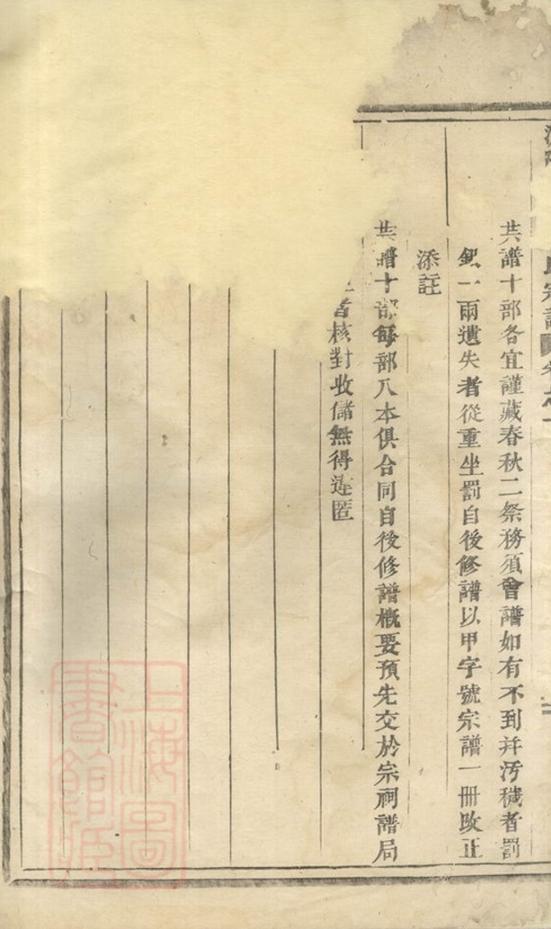 氏宗譜
共譜十部各宜謹藏春秋二祭務須會譜如有不到并汚穢者罰
銀一兩遺失者從重坐罰自後修譜以甲字號宗譜一冊改正
添註
共譜十部每部八本俱合同自後修譜概要預先交於宗祠譜局
者核對收儲無得迯匿
上海圖書館藏